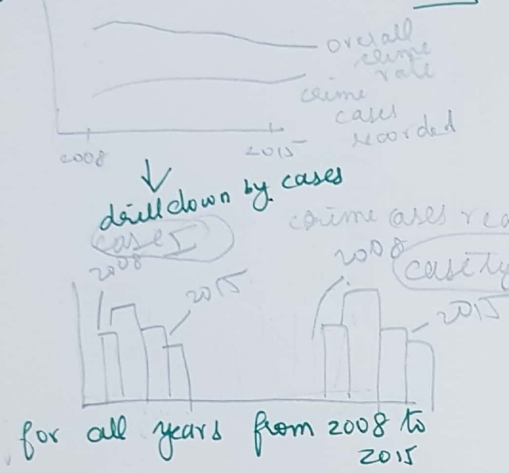 overall
crime
rate
crime
cases
recorded
2008
2015
drilldown by cases
case I
crime ases rec
2008
2008
case ty
2015
2015
for all years from 2008 to
2015